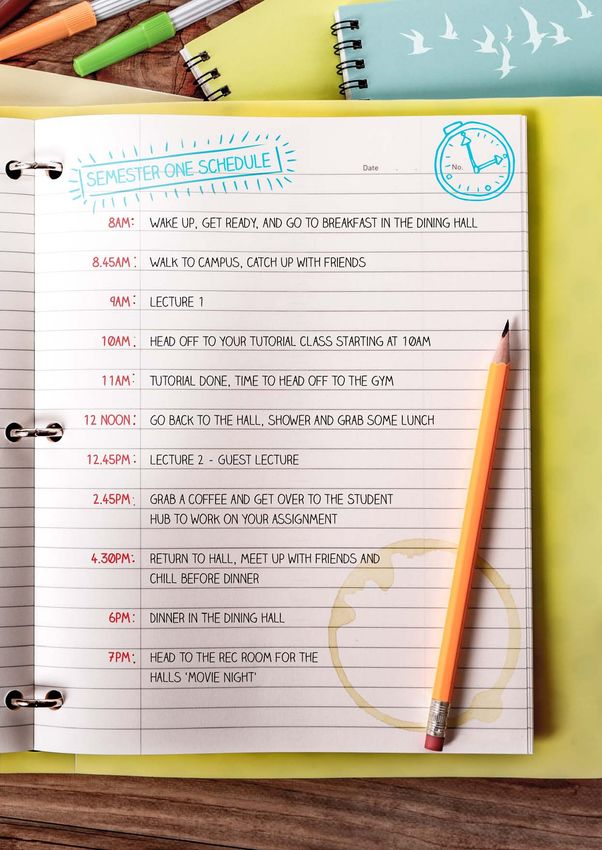 SEMESTER ONE SCHEDULE
Date
No.
8AM: WAKE UP, GET READY, AND GO TO BREAKFAST IN THE DINING HALL
8.45AM: WALK TO CAMPUS, CATCH UP WITH FRIENDS
9AM: LECTURE 1
10AM: HEAD OFF TO YOUR TUTORIAL CLASS STARTING AT 10AM
11AM: TUTORIAL DONE, TIME TO HEAD OFF TO THE GYM
12 NOON: GO BACK TO THE HALL, SHOWER AND GRAB SOME LUNCH
12.45PM: LECTURE 2 - GUEST LECTURE
2.45PM: GRAB A COFFEE AND GET OVER TO THE STUDENT
HUB TO WORK ON YOUR ASSIGNMENT
4.30PM: RETURN TO HALL, MEET UP WITH FRIENDS AND
CHILL BEFORE DINNER
6PM: DINNER IN THE DINING HALL
7PM: HEAD TO THE REC ROOM FOR THE
HALLS 'MOVIE NIGHT'